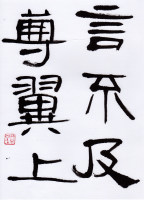 言不及
尊翼上